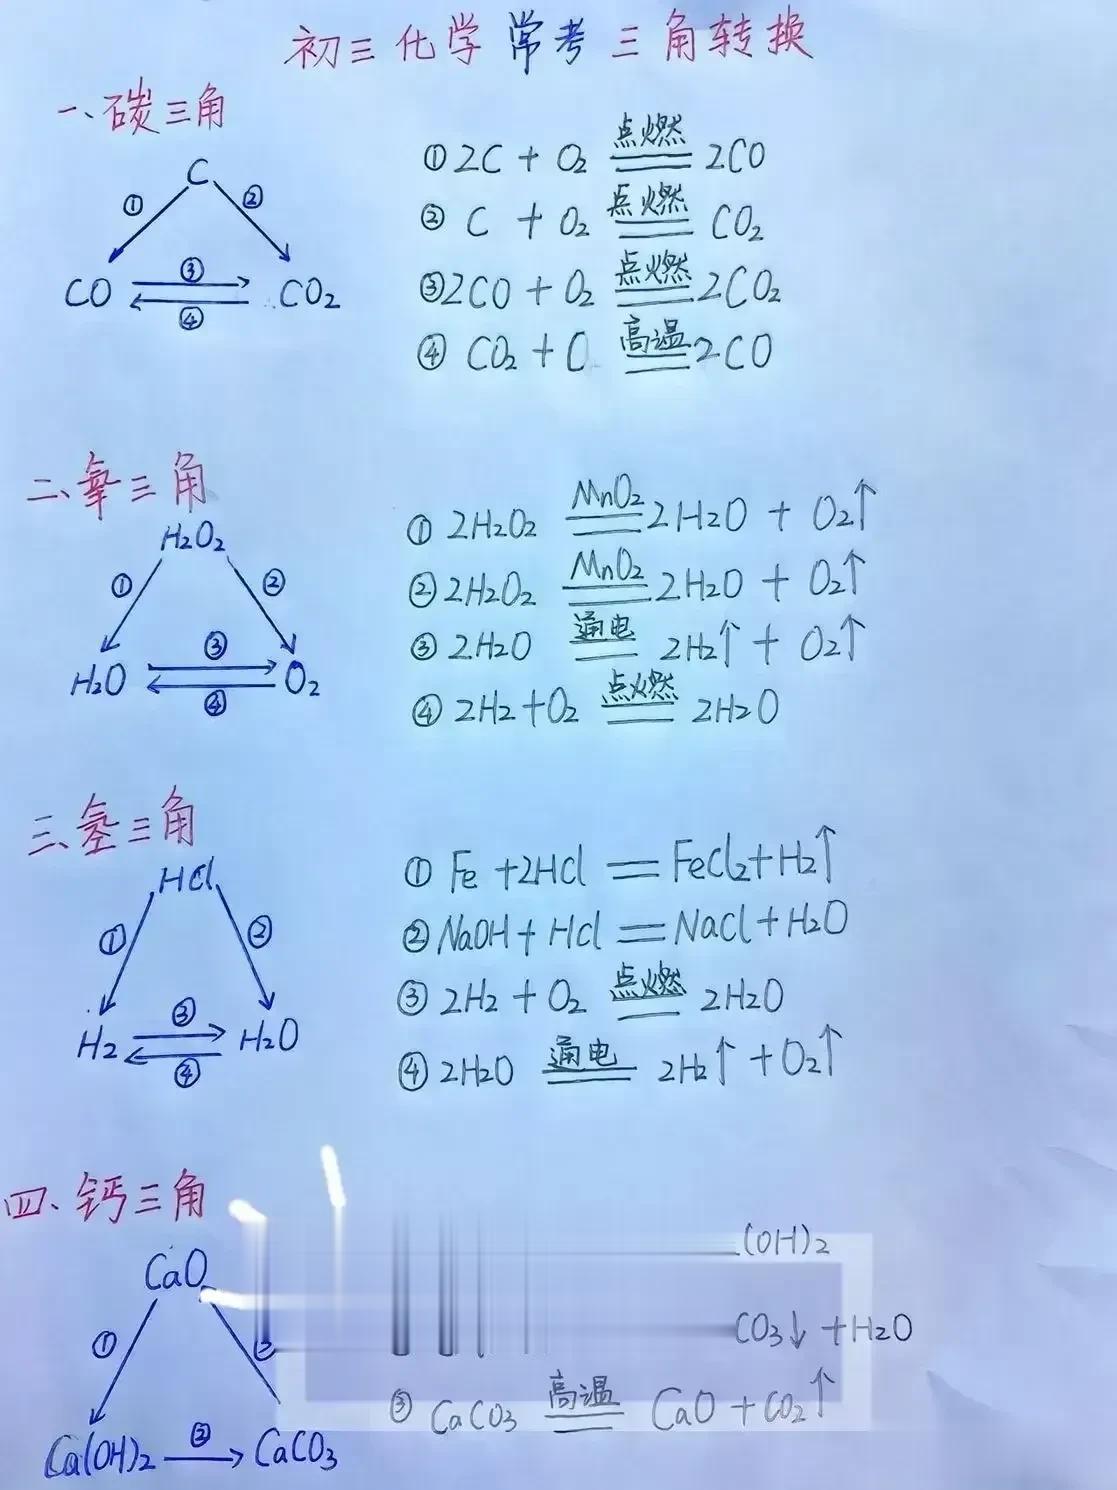 初三化学常考三角转换
一、碳三角
C
① ②
CO ③ ④ CO₂
① 2C + O₂ 点燃 2CO
② C + O₂ 点燃 CO₂
③ 2CO + O₂ 点燃 2CO₂
④ CO₂ + C 高温 2CO
二、氧三角
H₂O₂
① ②
H₂O ③ ④ O₂
① 2H₂O₂ MnO₂ 2H₂O + O₂↑
② 2H₂O₂ MnO₂ 2H₂O + O₂↑
③ 2H₂O 通电 2H₂↑ + O₂↑
④ 2H₂+O₂ 点燃 2H₂O
三、氢三角
HCl
① ②
H₂ ③ ④ H₂O
① Fe +2HCl = FeCl₂+H₂↑
② NaOH + HCl = NaCl + H₂O
③ 2H₂ + O₂ 点燃 2H₂O
④ 2H₂O 通电 2H₂↑ + O₂↑
四、钙三角
CaO
①
Ca(OH)₂ ② CaCO₃
(OH)₂
CO₃↓ +H₂O
③ CaCO₃ 高温 CaO + CO₂↑